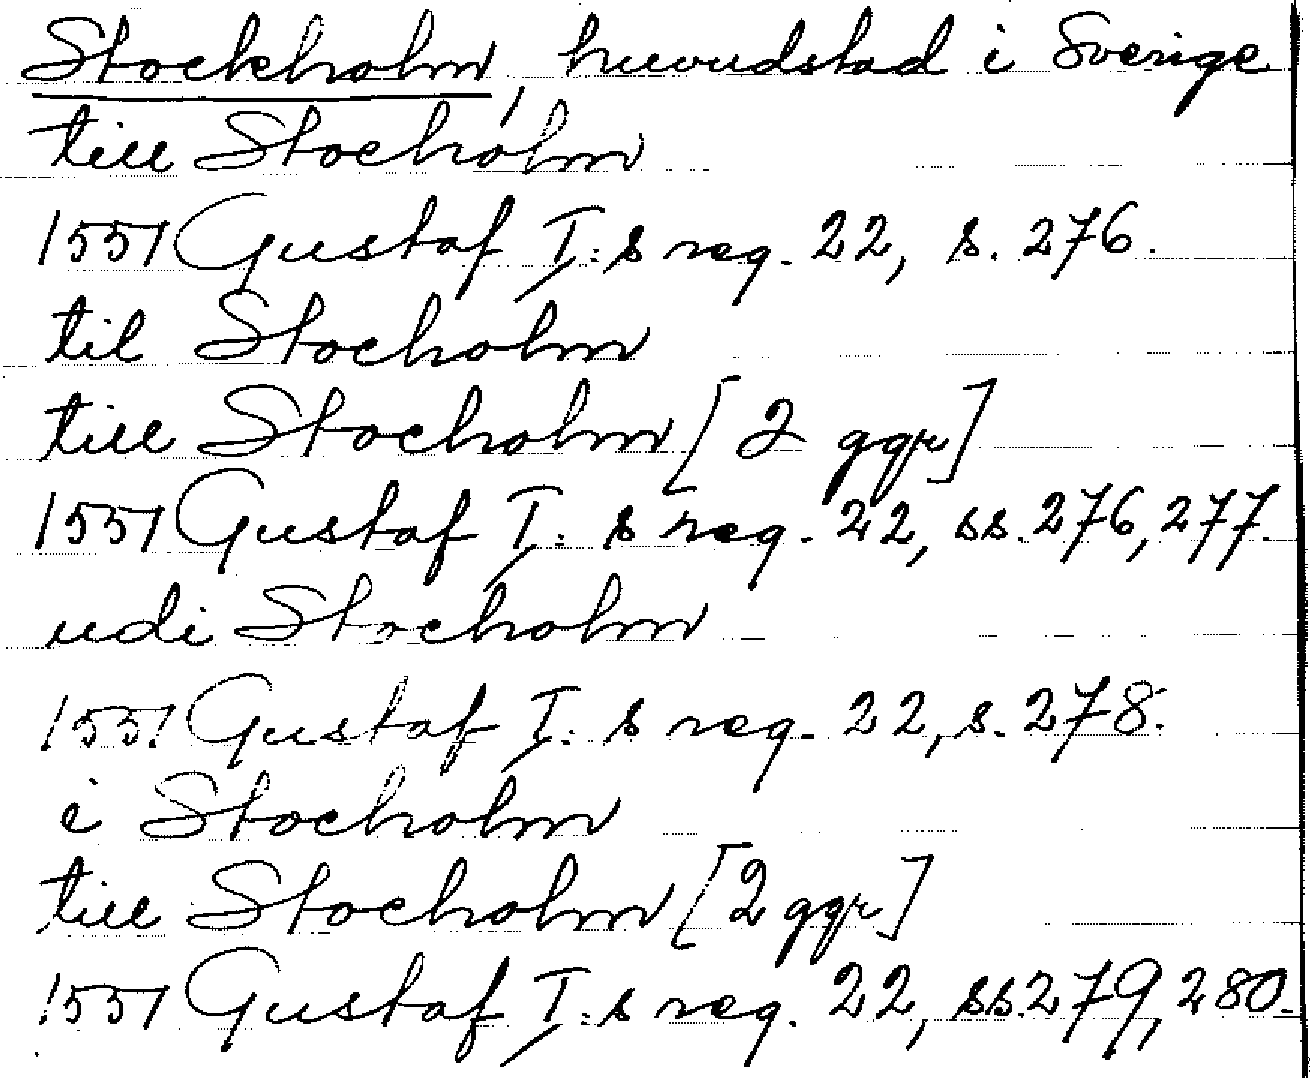 Stockholm, huvudstad i Sverige
till Stocholm
1551 Gustaf I:s reg. 22, s. 276.
til Stocholm
till Stocholm [2 ggr]
1551 Gustaf I:s reg. 22, ss. 276, 277.
udi Stocholm
1551 Gustaf I:s reg. 22, s. 278.
i Stocholm
till Stocholm [2 ggr]
1551 Gustaf I:s reg. 22, ss. 279, 280.